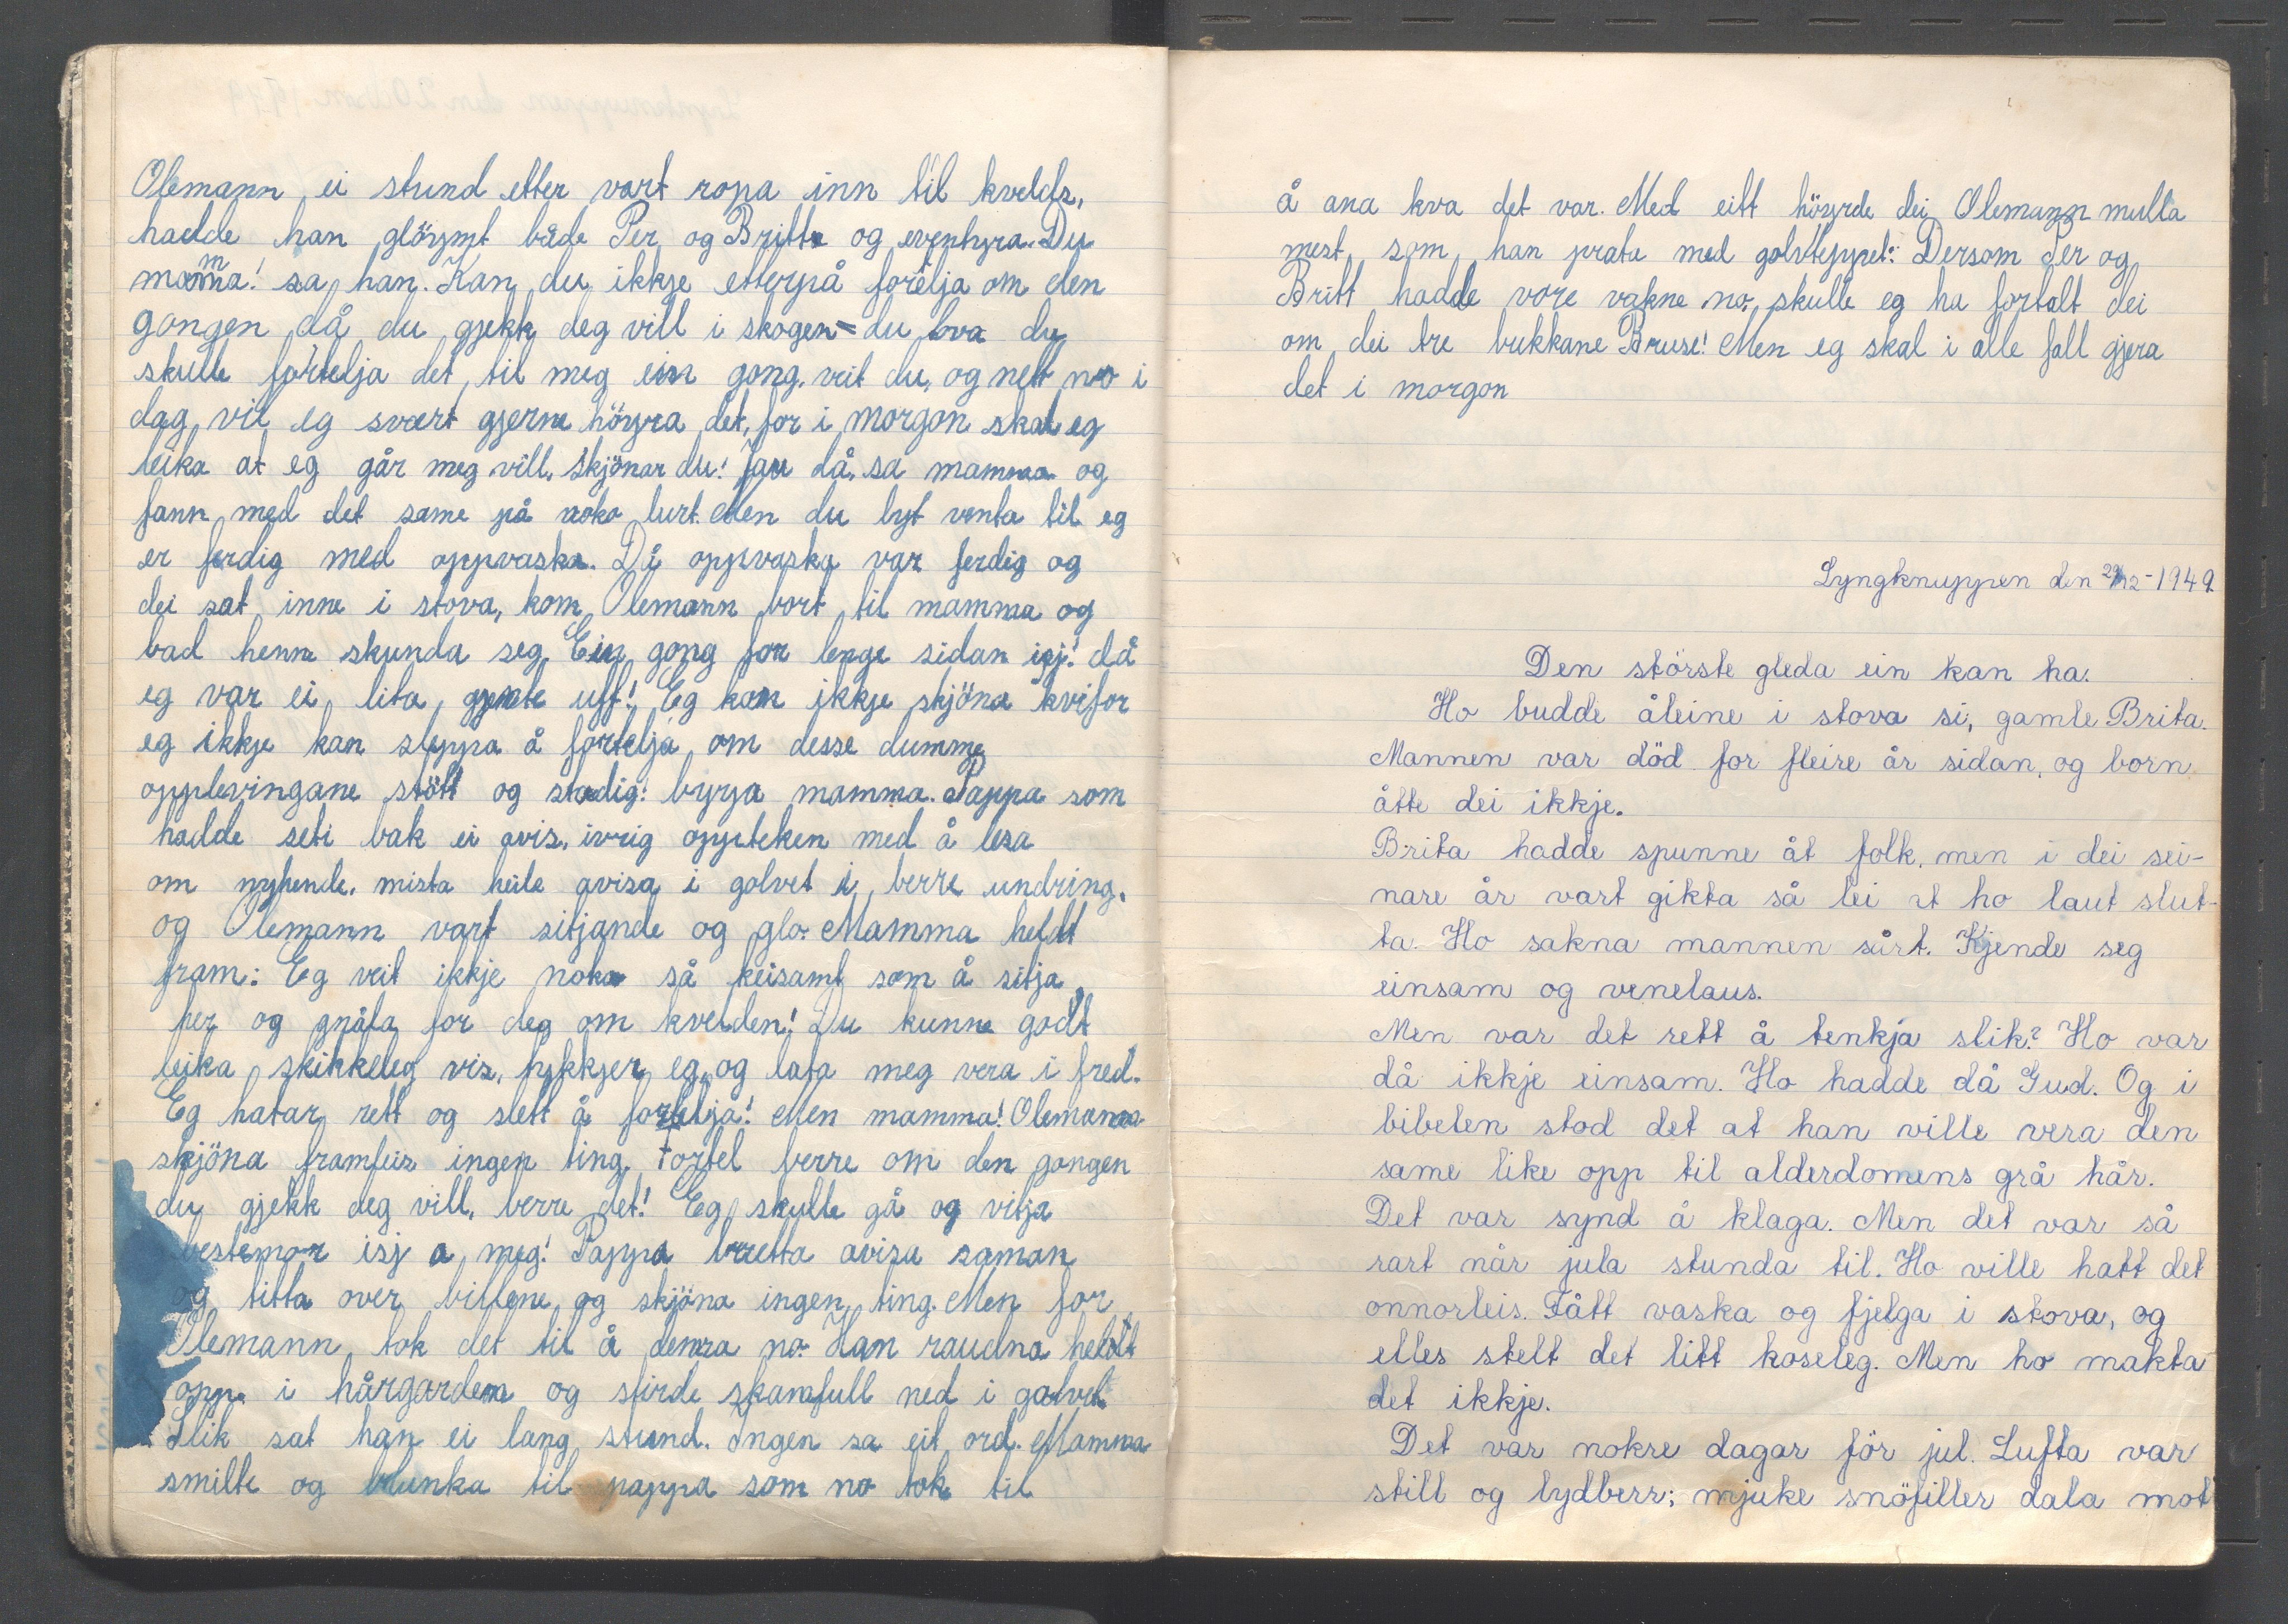 Olemann ei stund etter vart ropa inn til kvelds,
hadde han glöymt både Per og Britt og eventyra. Du
mamma! sa han. Kan du ikkje etterpå forelja om den
gongen då du gjekk deg vill i skogen = du lova du
skulle fortelja det til meg ein gong, veit du, og nett no i
dag vil eg svært gjerne höyra det, for i morgon skal eg
leika at eg går meg vill, skjönar du! Jau då, sa mamma og
fann med det same på noko lurt. Men du lyt venta til eg
er ferdig med oppvaska. Då oppvaska var ferdig og
dei sat inne i stova, kom Olemann bort til mamma og
bad henne skunda seg. Ein gong for lenge sidan isj! då
eg var ei lita gjente uff! Eg kan ikkje skjöna kvifor
eg ikkje kan sleppa å fortelja om desse dumme
opplevingane stött og stadig! byrja mamma. Pappa som
hadde seti bak ei avis, ivrig oppteken med å lesa
om nyhende, mista heile avisa i golvet i berre undring,
og Olemann vart sitjande og glo. Mamma heldt
fram: Eg veit ikkje noko så keisamt som å sitja
her og gnåla for deg om kvelden! Du kunne godt
leika skikkeleg vis, tykkjer eg, og lata meg vera i fred.
Eg hatar rett og slett å fortelja! Men mamma! Olemann
skjöna framleis ingen ting. Fortel berre om den gongen
du gjekk deg vill, berre det! Eg skulle gå og vitja
bestemor isj a meg! Pappa bretta avisa saman
og titta over brillene og skjöna ingen ting. Men for
Olemann tok det til å demra no. Han raudna heilt
opp i hårgarden og stirde skamfull ned i golvet.
Slik sat han ei lang stund. Ingen sa eit ord. Mamma
smilte og blunka til pappa som no tok til
å ana kva det var. Med eitt höyrde dei Olemann mulla
mest som han prata med golvteppet: Dersom Per og
Britt hadde vore vakne no, skulle eg ha fortalt dei
om dei tre bukkane Bruse! Men eg skal i alle fall gjera
det i morgon
Lyngknuppen den 29/12-1949
Den störste gleda ein kan ha.
Ho budde åleine i stova si, gamle Brita.
Mannen var död for fleire år sidan, og born
åtte dei ikkje.
Brita hadde spunne åt folk, men i dei sei-
nare år vart gikta så lei at ho laut slut-
ta. Ho sakna mannen sårt. Kjende seg
einsam og venelaus.
Men var det rett å tenkja slik? Ho var
då ikkje einsam. Ho hadde då Gud. Og i
bibelen stod det at han ville vera den
same like opp til alderdomens grå hår.
Det var synd å klaga. Men det var så
rart når jula stunda til. Ho ville hatt det
onnorleis. Fått vaska og fjelga i stova, og
elles stelt det litt koseleg. Men ho makta
det ikkje.
Det var nokre dagar för jul. Lufta var
still og lydberr; mjuke snöfiller dala mot